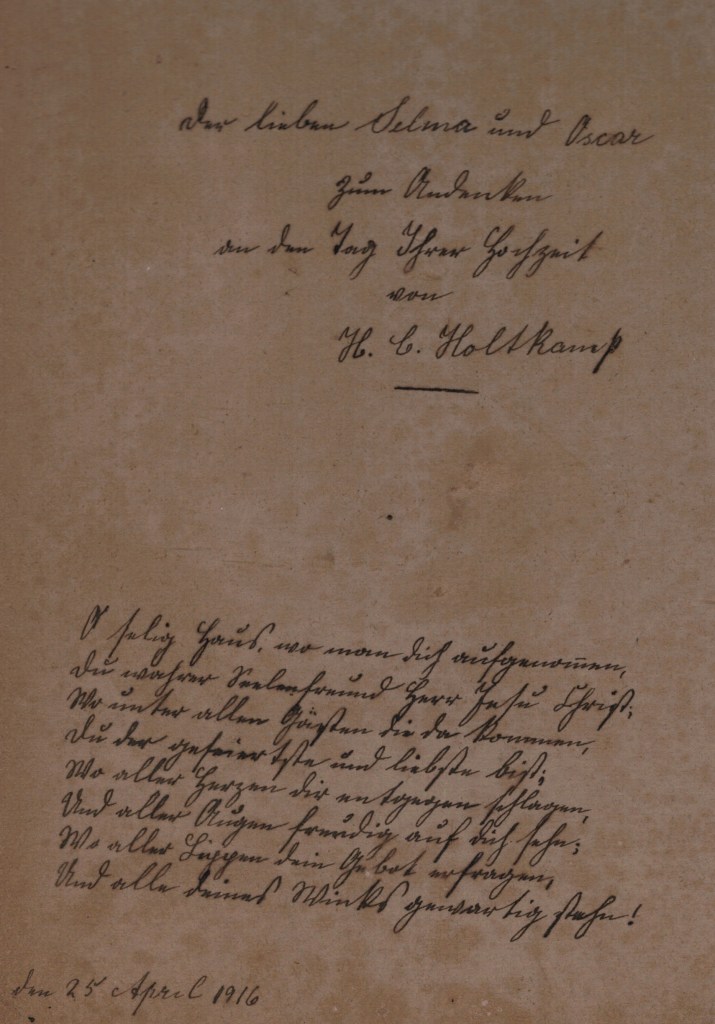 Der lieben Selma und Oscar
zum Andenken
an den Tag Ihrer Hochzeit
von
H. C. Holtkamp
O selig Haus, wo man dich aufgenom̅en,
Du wahrer Seelenfreund Herr Jesu Christ;
Wo unter allen Gästen die da kommen,
Du der gefeiertste und liebste bist;
Wo aller Herzen dir entgegen schlagen,
Und aller Augen freudig auf dich sehn;
Wo aller Lippen dein Gebot erfragen,
Und alle deines Winks gewärtig stehn!
den 25 April 1916